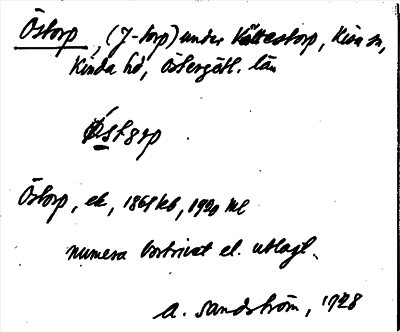 Östorp, (J-torp) under Kättestorp, Kisa sn,
Kinda hd, Östergötl. län
Östorp
Östorp, ek, 1868 kb, 1920 ml
numera bortrivet el. utlagt.
A. Sandström, 1928